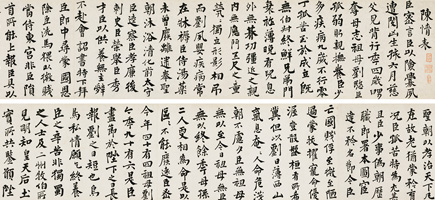 陳情表
臣密言臣以險釁夙
遭閔凶生孩六月慈
父見背行年四歲舅
奪母志祖母劉愍臣
孤弱躬親撫養臣少
多疾病九歲不行零
丁孤苦至於成立既
無伯叔終鮮兄弟門
衰祚薄晚有兒息
外無朞功彊近之親
內無應門五尺之童
煢煢獨立形影相弔
而劉夙嬰疾病常
在牀蓐臣侍湯藥
未嘗廢離逮奉聖
朝沐浴清化前太守
臣逵察臣孝廉後
刺史臣榮舉臣秀
才臣以供養無主辭
不赴會詔書特下拜
臣郎中尋蒙國恩
除臣洗馬猥以微賤
當侍東宮非臣隕
首所能上報臣具以
聖朝以孝治天下凡
在故老猶蒙矜育
況臣孤苦特為尤甚
且臣少事偽朝歷
職郎署本圖宦
達不矜名節今臣
亡國賤俘至微至陋
過蒙拔擢寵命優
渥豈敢盤桓有所
希冀但以劉日薄西山
氣息奄奄人命危淺
朝不慮夕臣無祖母
無以至今日祖母無臣
無以終餘年母孫二
人更相為命是以區
區不能廢遠臣密
今年四十有四祖母劉
今年九十有六是臣
盡節於陛下之日長
報劉之日短也烏
鳥私情願乞終養
臣之辛苦非獨蜀
之人士及二州牧伯所
見明知皇天后土
實所共鑒願陛